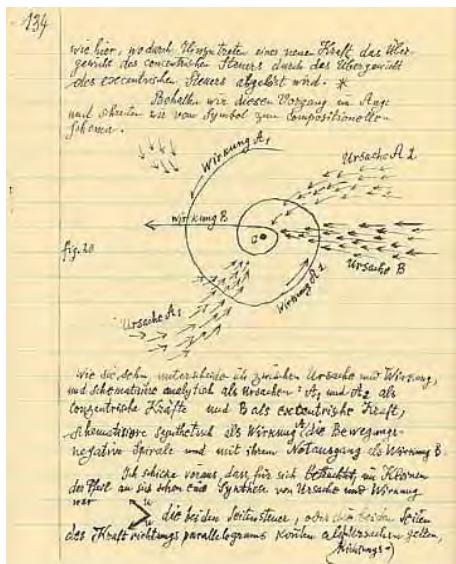 134
wie hier, wo durch Hinzutreten einer neuen Kraft das Über-
gewicht des concentrischen Steuers durch das Übergewicht
des excentrischen Steuers abgelöst wird. *
Behalten wir diesen Vorgang im Auge
und schreiten wir vom Symbol zum compositionellen
Schema.
Wirkung A1
Ursache A2
wirkung B
fig. 20
Ursache B
Wirkung A2
Ursache A1
Wie Sie sehn unterscheide ich zwischen Ursache und Wirkung,
und schematisiere analytisch als Ursachen: A1 und A2 als
conzentrische Kräfte und B als excentrische Kraft,
schematisiere synthetisch als Wirkung A die Bewegungs-
negative Spirale und mit ihrem Notausgang als Wirkung B.
Ich schicke voraus, dass für sich betrachtet, im Kleinen
der Pfeil an sich schon eine Synthese von Ursache und Wirkung
war
die beiden Seitensteuer, oder die beiden Seiten
des Kraftrichtungs parallelograms konten als Ursachen gelten,